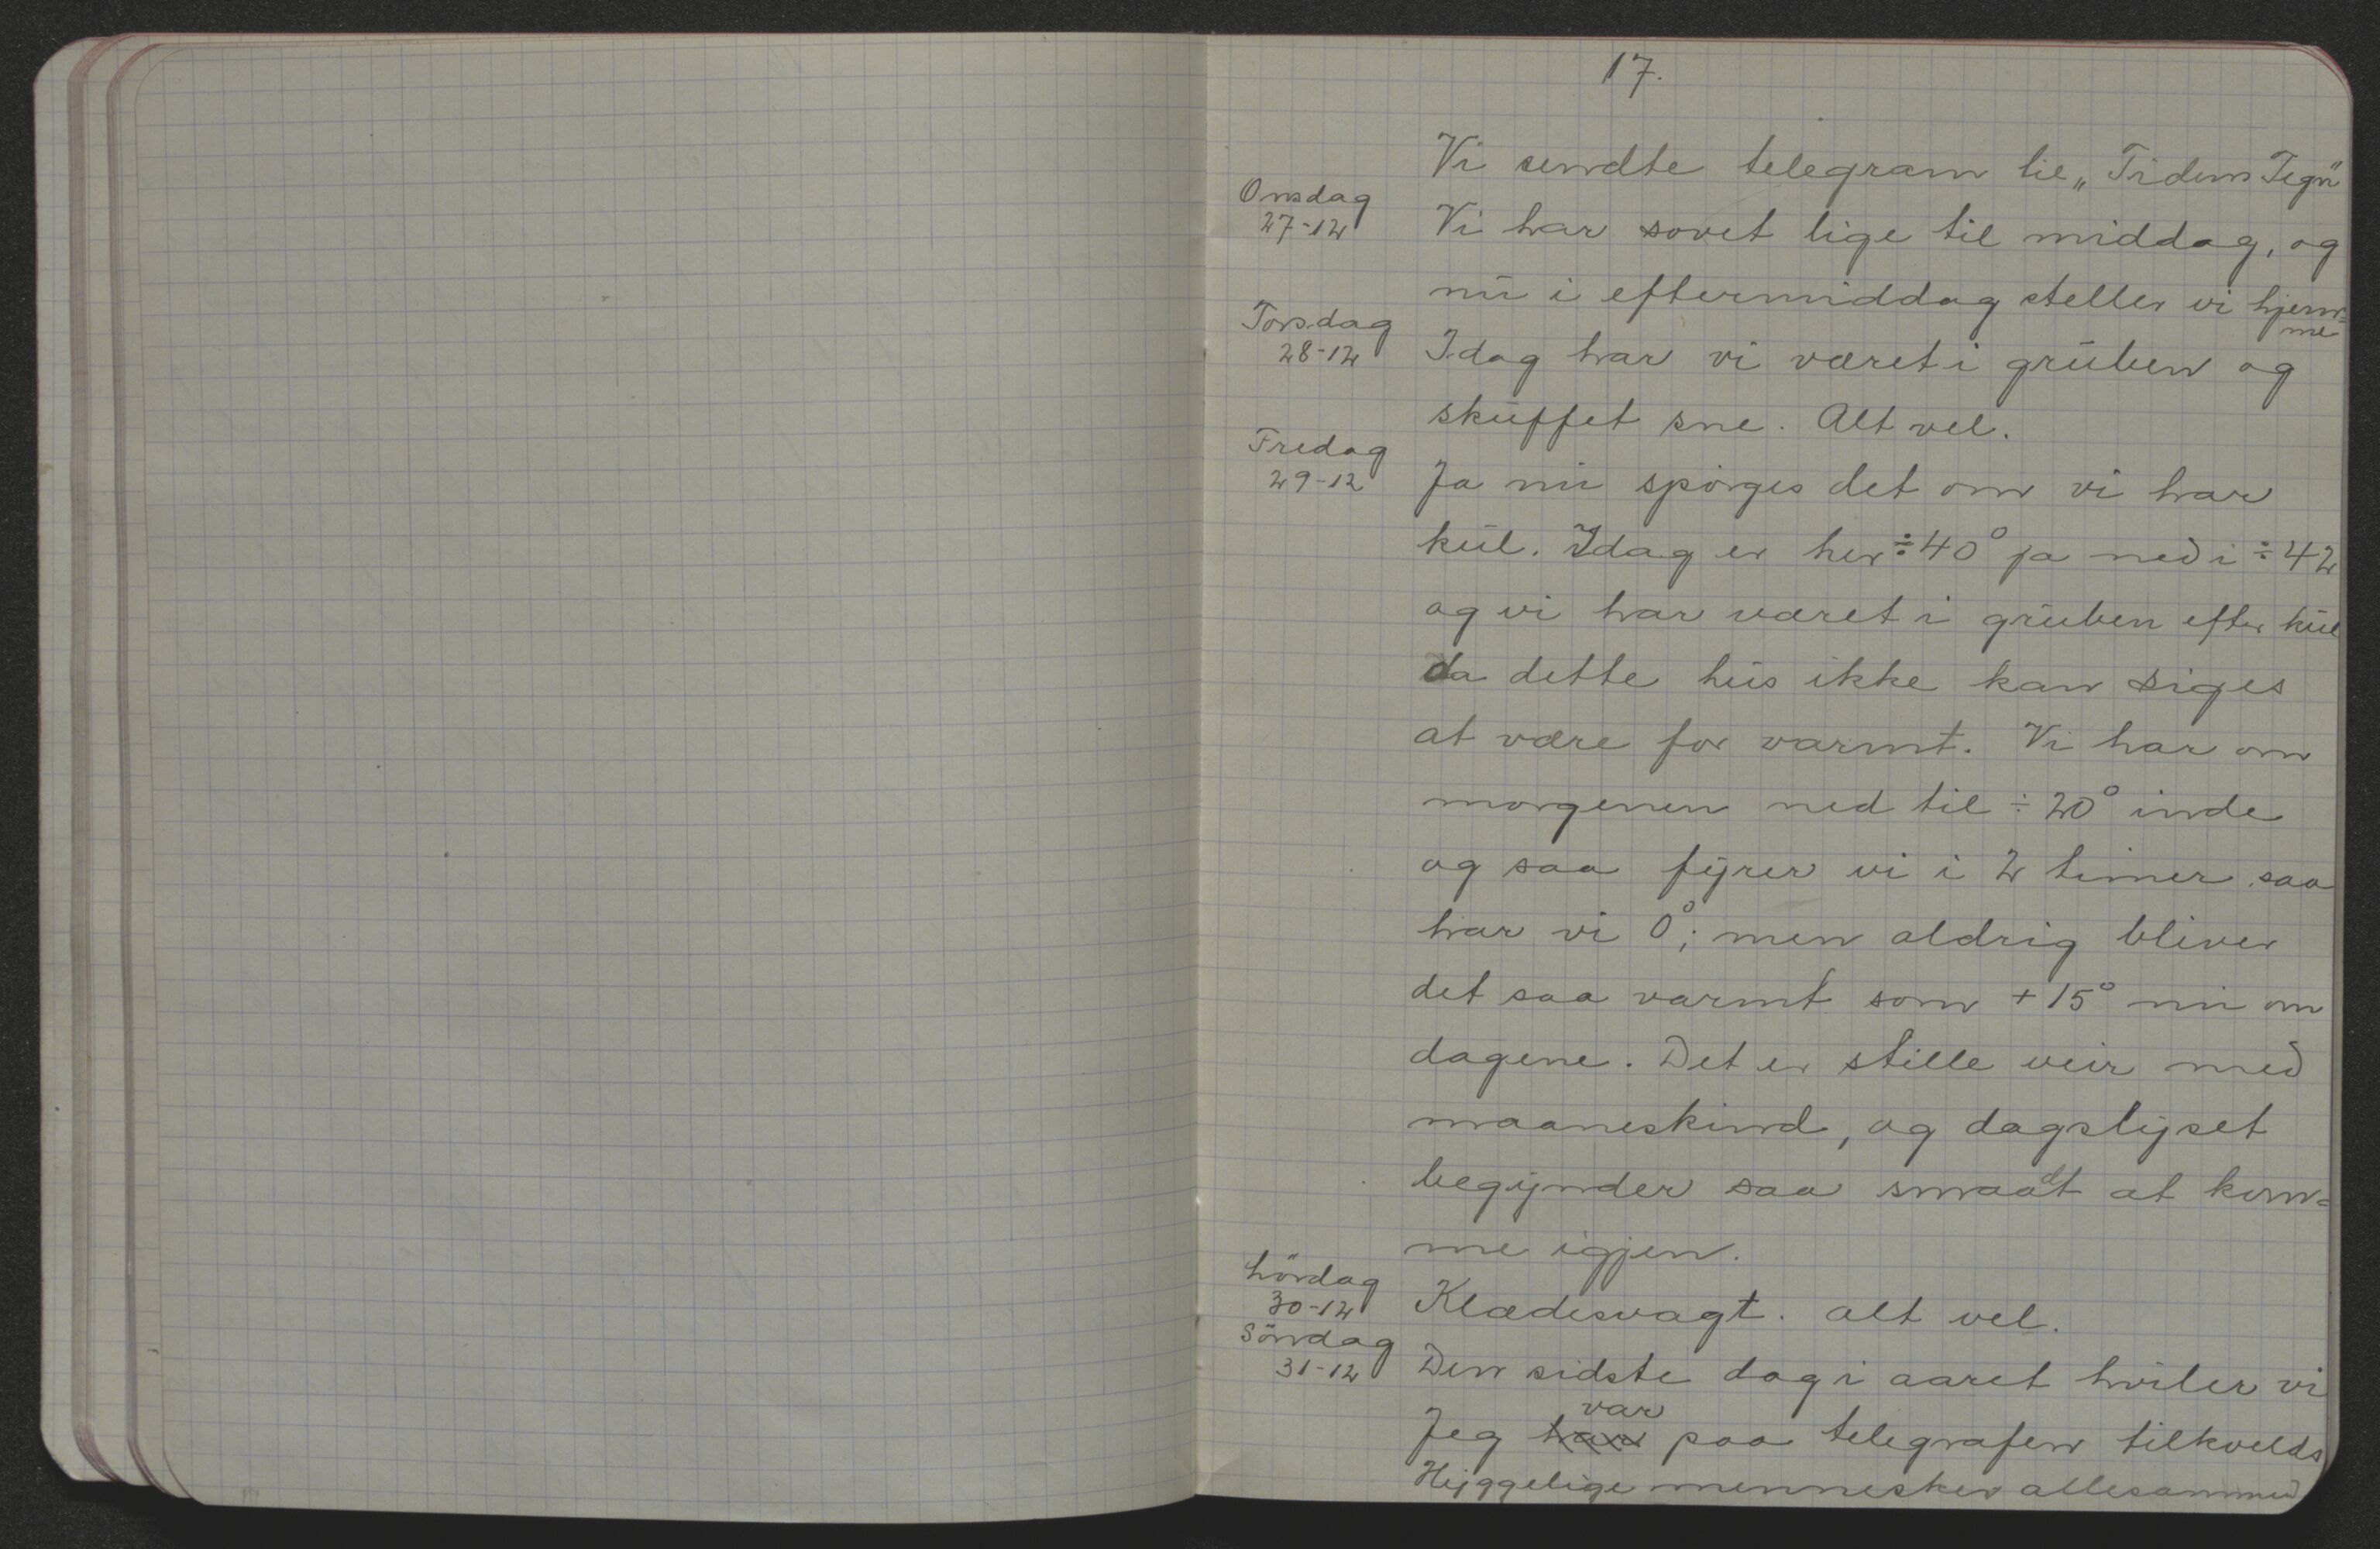 17.
Vi sendte telegram til „Tidens Tegn"
Onsdag
27-12
Vi har sovet lige til middag, og
nu i eftermiddag steller vi hjem=
me
Torsdag
28-12
Idag har vi været i gruben og
skuffet sne. Alt vel.
Fredag
29-12
Ja nu spörges det om vi har
kul. Idag er her ÷40° ja ned i ÷42
og vi har været i gruben efter kul
da dette hus ikke kan siges
at være for varmt. Vi har om
morgenen ned til ÷20° inde
og saa fyrer vi i 2 timer saa
har vi 0°; men aldrig bliver
det saa varmt som +15° nu om
dagene. Det er stille veir med
maaneskind, og dagslyset
begynder saa smaadt at kom=
me igjen.
Lördag
30-12
Klædesvagt. alt vel.
Söndag
31-12
Den sidste dag i aaret hviler vi
Jeg har var paa telegrafen tilkvelds
Hyggelige mennesker allesammed